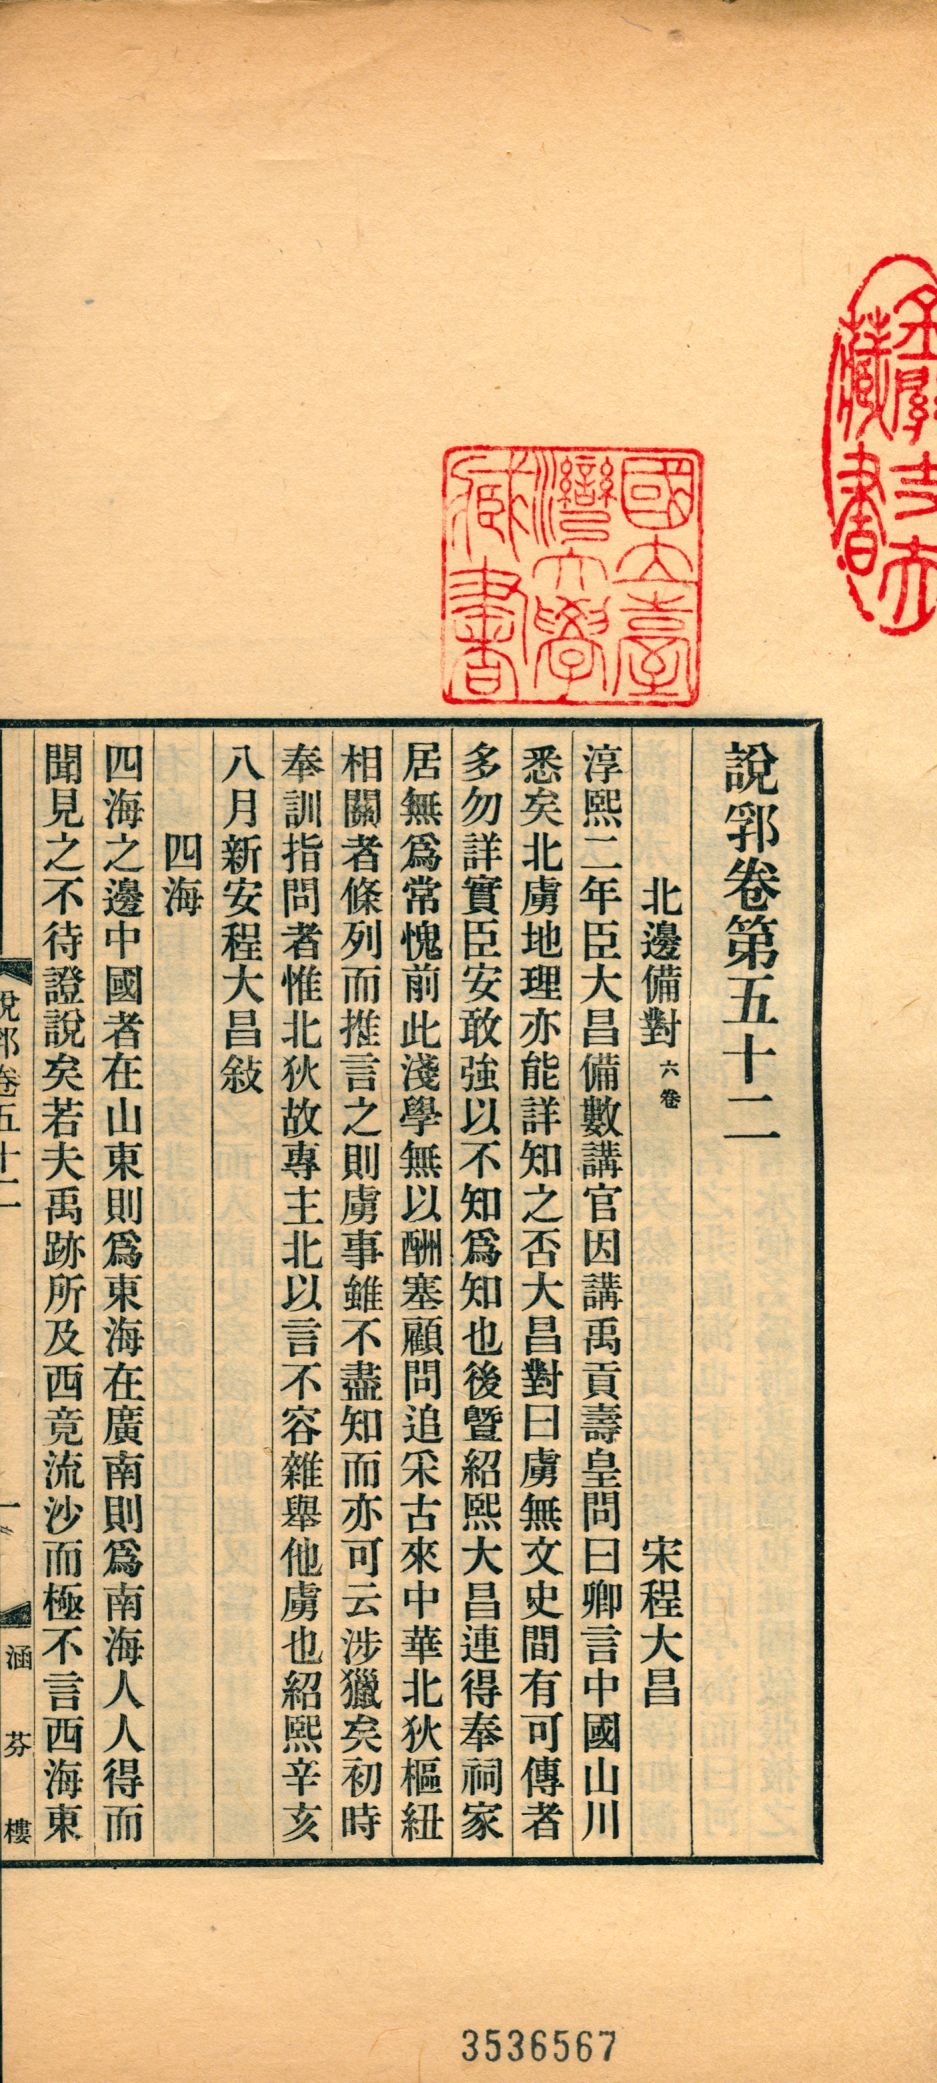 說郛卷第五十二
北邊備對 六卷 宋程大昌
淳熙二年臣大昌備數講官因講禹貢壽皇問曰卿言中國山川
悉矣北虜地理亦能詳知之否大昌對曰虜無文史間有可傳者
多勿詳實臣安敢強以不知爲知也後曁紹熙大昌連得奉祠家
居無爲常愧前此淺學無以酬塞顧問追采古來中華北狄樞紐
相關者條列而推言之則虜事雖不盡知而亦可云涉獵矣初時
奉訓指問者惟北狄故專主北以言不容雜舉他虜也紹熙辛亥
八月新安程大昌敍
四海
四海之邊中國者在山東則爲東海在廣南則爲南海人人得而
聞見之不待證說矣若夫禹跡所及西竟流沙而極不言西海東
說郛卷五十二 一 涵芬樓
國立臺灣大學藏書
藏書
3536567